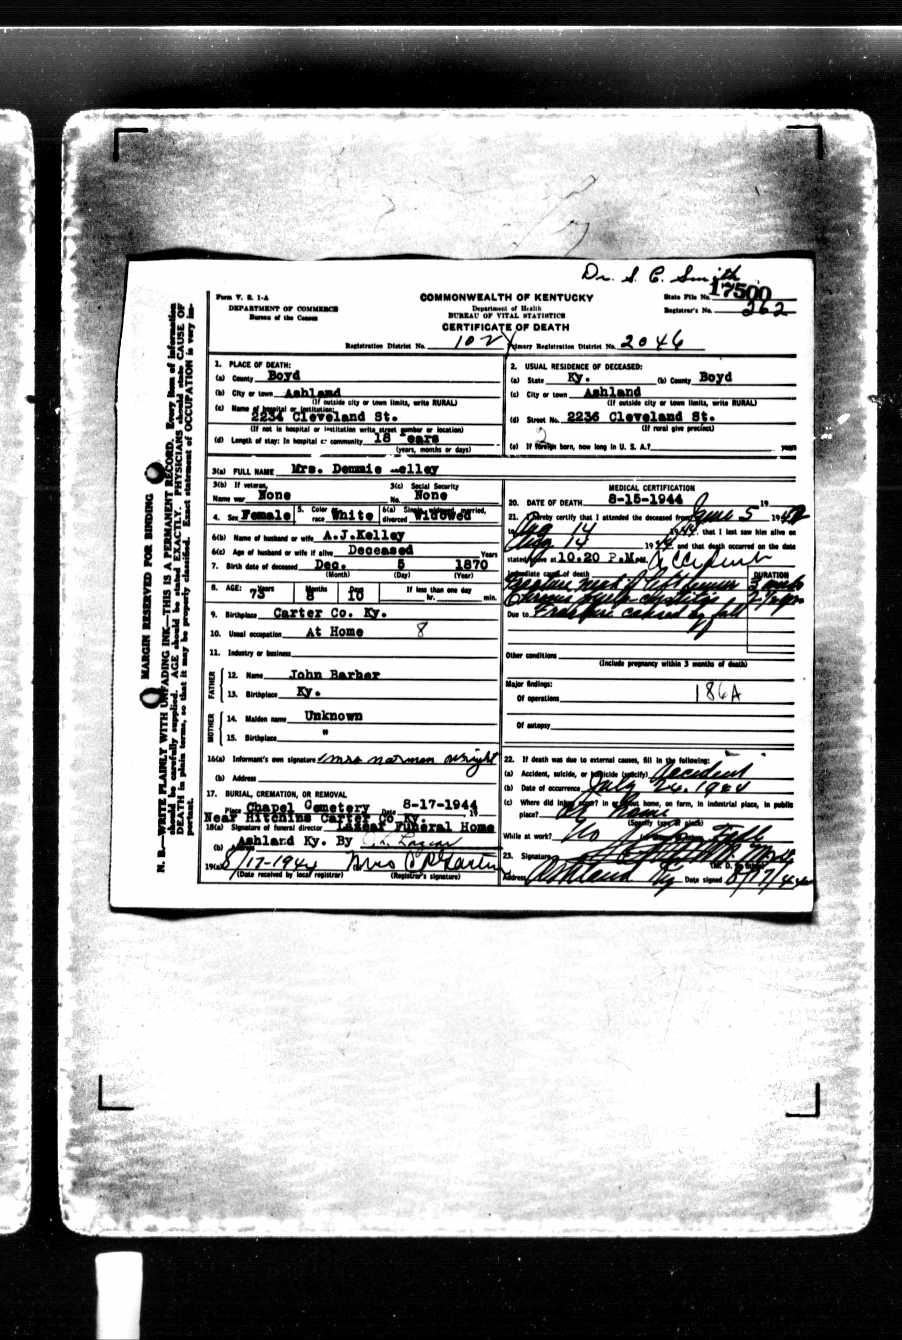 Dr. S. C. Smith
Form V. S. 1-A
DEPARTMENT OF COMMERCE
Bureau of the Census
COMMONWEALTH OF KENTUCKY
Department of Health
BUREAU OF VITAL STATISTICS
CERTIFICATE OF DEATH
State File No. 17500
Registrar's No. 262
Registration District No. 102 Primary Registration District No. 2046
MARGIN RESERVED FOR BINDING
N. B.—WRITE PLAINLY WITH UNFADING INK—THIS IS A PERMANENT RECORD. Every item of information
should be carefully supplied. AGE should be stated EXACTLY. PHYSICIANS should state CAUSE OF
DEATH in plain terms, so that it may be properly classified. Exact statement of OCCUPATION is very im-
portant.
1. PLACE OF DEATH:
(a) County Boyd
(b) City or town Ashland
(If outside city or town limits, write RURAL)
(c) Name of hospital or institution:
2234 Cleveland St.
(If not in hospital or institution write street number or location)
(d) Length of stay: In hospital or community 18 ears
(years, months or days)
2. USUAL RESIDENCE OF DECEASED:
(a) State Ky. (b) County Boyd
(c) City or town Ashland
(If outside city or town limits, write RURAL)
(d) Street No. 2236 Cleveland St.
(If rural give precinct)
2
(e) If foreign born, how long in U. S. A.? years
3(a) FULL NAME Mrs. Demmie elley
3(b) If veteran,
Name war None
3(c) Social Security
No. None
4. Sex Female 5. Color race White 6(a) Single, widowed, married, divorced Widowed
6(b) Name of husband or wife A.J.Kelley
6(c) Age of husband or wife if alive Deceased Years
7. Birth date of deceased Dec. 5 1870
(Month) (Day) (Year)
8. AGE: Years 73 Months 8 10 If less than one day
hr. min.
9. Birthplace Carter Co. Ky.
10. Usual occupation At Home 8
11. Industry or business
FATHER
12. Name John Barber
13. Birthplace Ky.
MOTHER
14. Maiden name Unknown
15. Birthplace "
16(a) Informant's own signature Mrs Norman Wright
(b) Address
17. BURIAL, CREMATION, OR REMOVAL
Place Chapel Cemetery Date 8-17-1944 19
Near Hitchins Carter Co Ky.
18(a) Signature of funeral director Lazear Funeral Home
(b) Address Ashland Ky. By
19(a) 8/17-1944 Mrs C
(Date received by local registrar) (Registrar's signature)
MEDICAL CERTIFICATION
20. DATE OF DEATH 8-15-1944 19
21. I hereby certify that I attended the deceased from June 5 19
to Aug 14 1944, that I last saw him alive on
Aug 14 1944 and that death occurred on the date
stated above at 10.20 P.M. m. Accident
Immediate cause of death DURATION
Fracture neck of left femur 3 weeks
Chronic
Due to Fracture caused by fall
Other conditions
(Include pregnancy within 3 months of death)
Major findings:
Of operations 186A
Of autopsy
22. If death was due to external causes, fill in the following:
(a) Accident, suicide, or homicide (specify) Accident
(b) Date of occurrence July 24. 1944
(c) Where did injury occur? In or about home, on farm, in industrial place, in public
place? At Home
(Specify type of place)
While at work? No Fall
23. Signature M.D.
Address Ashland Ky Date signed 8/17/44